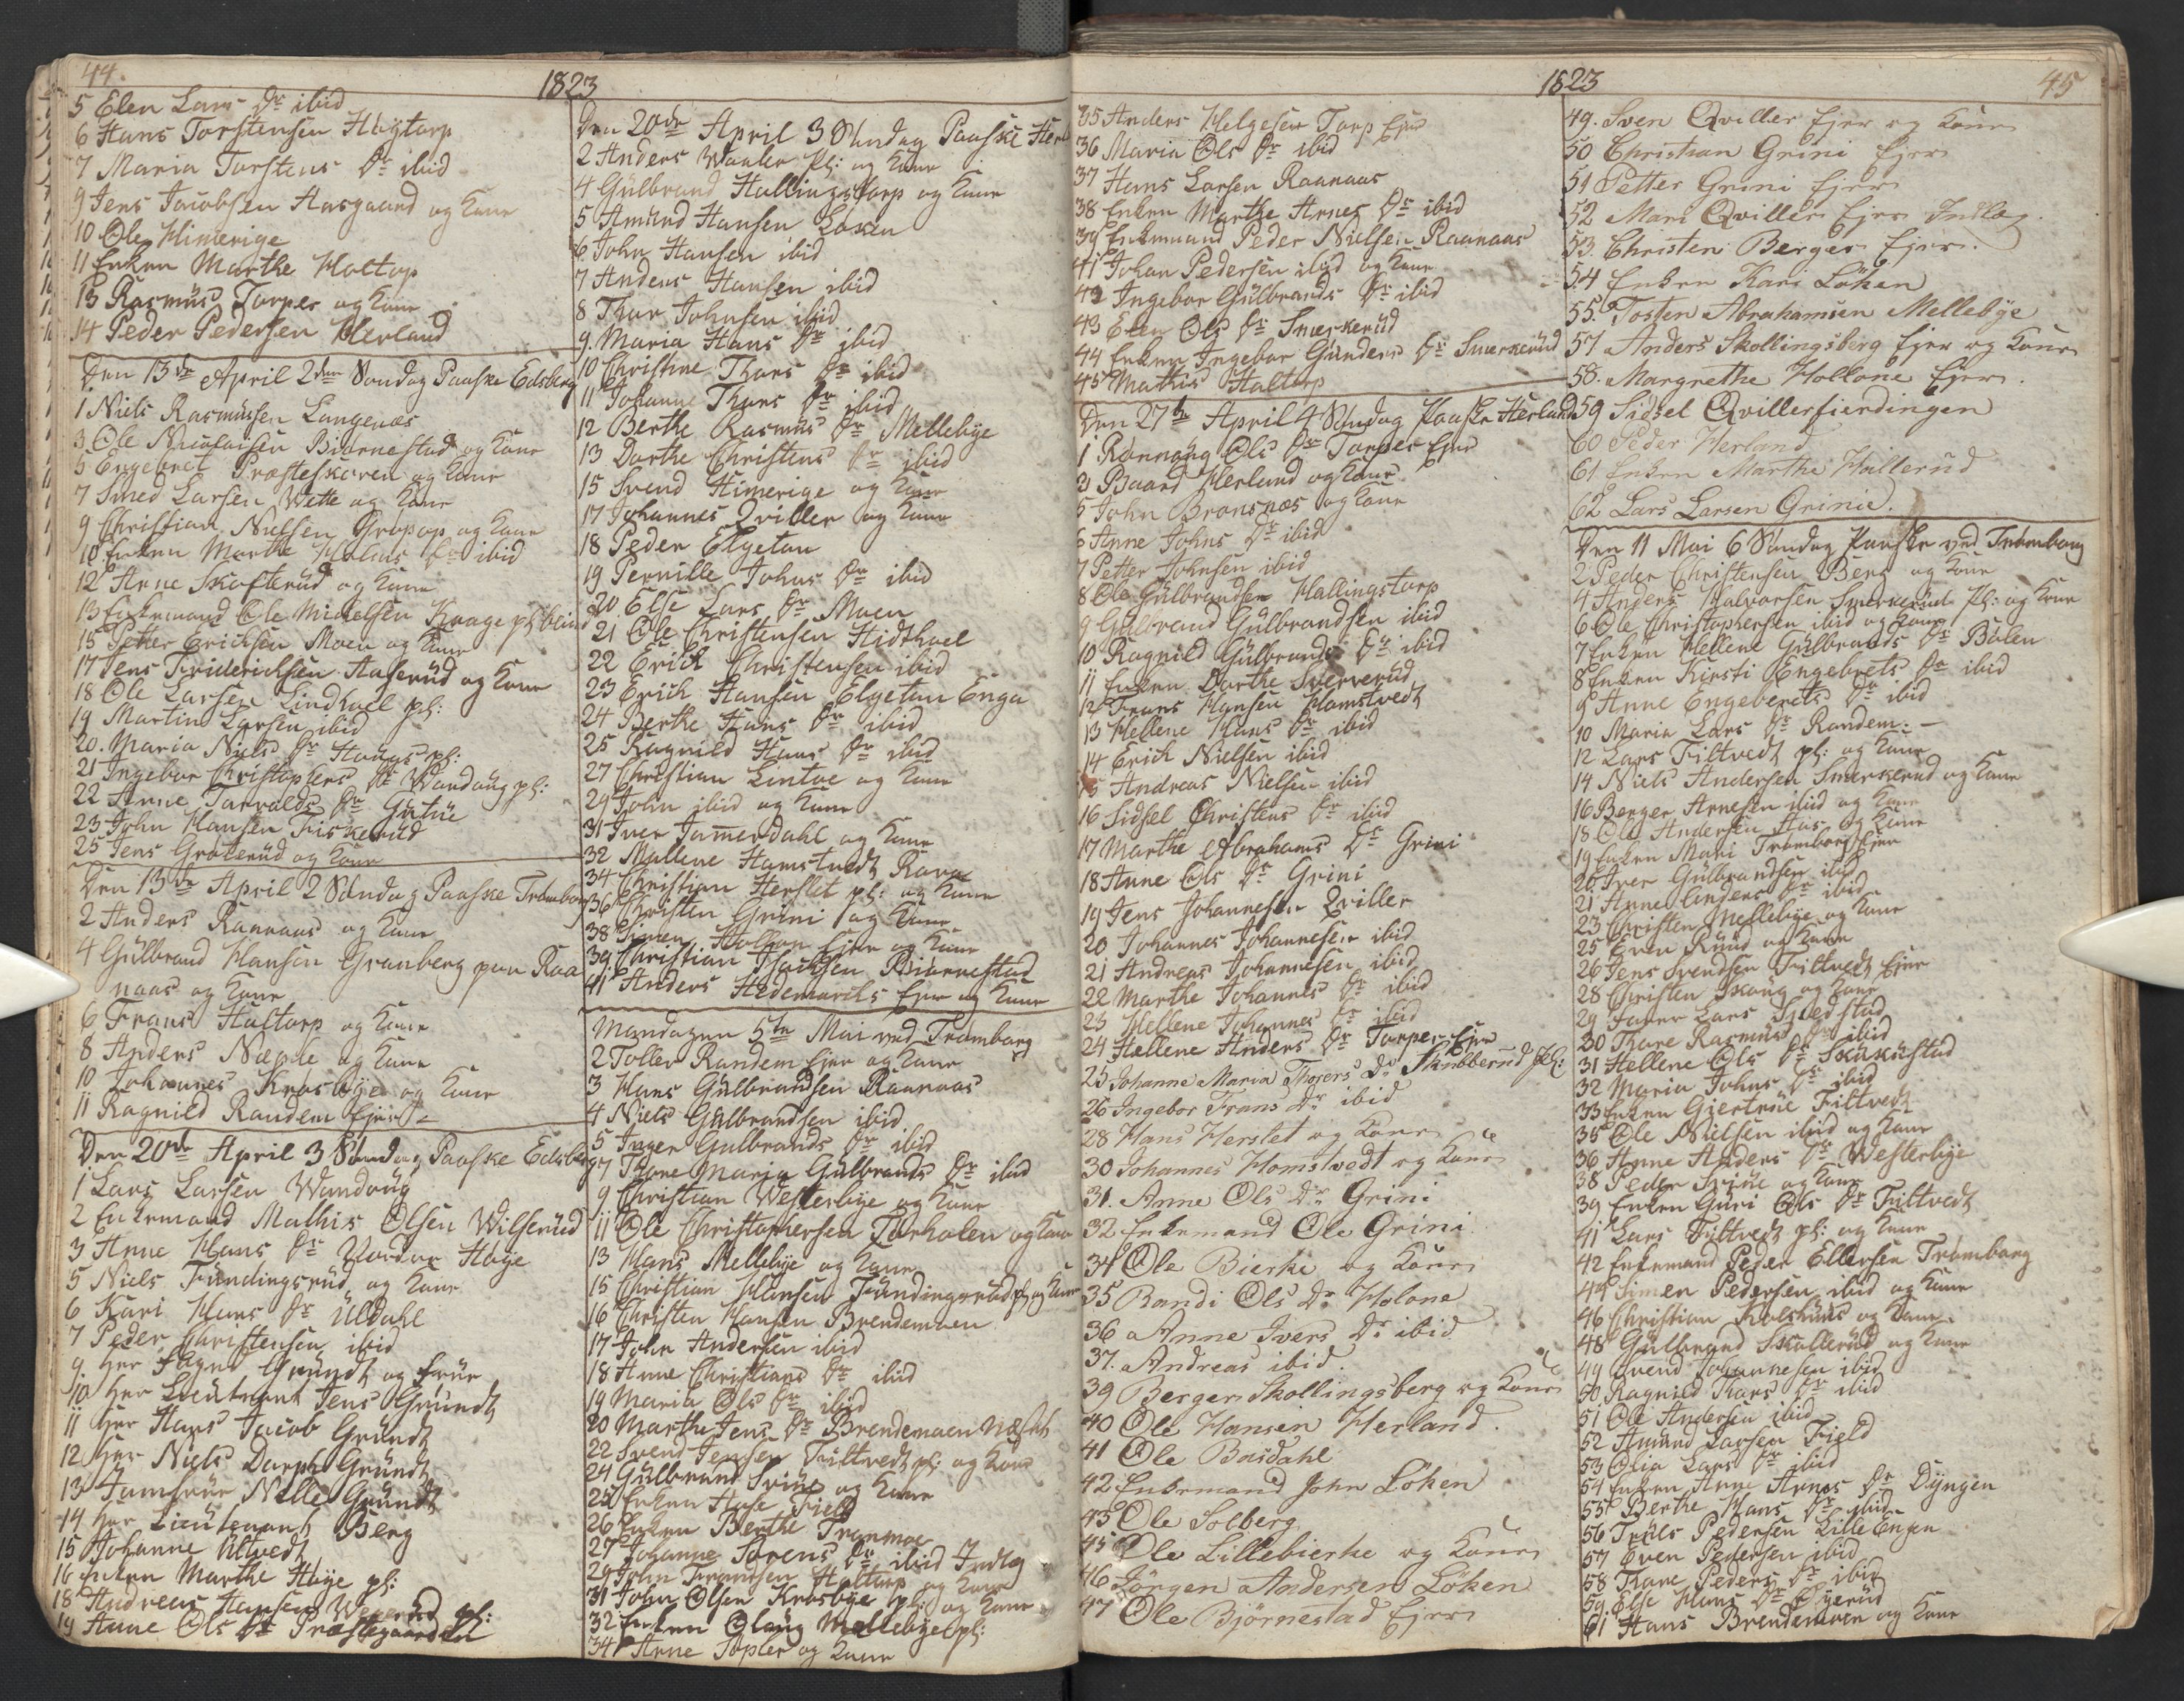 44.
1823
5 Elen Lars Dr ibid
6 Hans Torstensen Høytorp
7 Maria Torstens Dr ibid
9 Jens Jacobsen Aasgaard og Kone
10 Ole Himerige
11 Enken Marthe Haltop
13 Rasmus Torper og Kone
14 Peder Pedersen Herland
Den 13de April 2den Søndag Paaske Edsberg
1 Niels Rasmussen Langenæs
3 Ole Nicolaisen Biørnestad og Kone
5 Engebret Præsteskoven og Kone
7 Smed Larsen Wette og Kone
9 Christian Nielsen Gropop og Kone
10 Enken Marthe Dr ibid
12 Arne Skofterud og Kone
13 Enkemand Ole Michelsen Krage pl: blind
15 Peder Ericksen Moen og Kone
17 Jens Friderichsen Haserud og Kone
18 Ole Larsen Lindhoel pl:
19 Martin Larsen ibid
20. Maria Niels Dr pl:
21 Ingebor Christophers Dr Wandoug pl:
22 Anne Torvalds Dr Gutue
23 John Hansen Fiskerud
25 Jens Graterud og Kone
Den 13de April 2 Søndag Paaske Trømborg
2 Anders Raanaas og Kone
4 Gulbrand Hansen Granberg paa Raa
naas og Kone
6 Frans Haltorp og Kone
8 Anders Næple og Kone
10 Johannes Krosbye og Kone
11 Ragnild Randem Ejer
Den 20de April 3 Søndag Paaske Edsberg
1 Lars Larsen Wandoug
2 Enkemand Mathis Olsen Wilserud
3 Anne Hans Dr Høye
5 Niels Fundingsrud og Kone
6 Kari Hans Dr Ulldahl
7 Peder Christensen ibid
9 Hrr Grundt og Frue
10 Hrr Lieutnant Jens Grundt
11 Hrr Hans Jacob Grundt
12 Hrr Niels Grundt
13 Jomfrue Nille Grundt
14 Hrr Lieutenant Berg
15 Johanne Ultvedt
16 Enken Marthe Høye pl:
18 Andreas Hansen pl:
19 Anne Ols Dr Præstegaarden
Den 20de April 3 Søndag Paaske Herland
2 Anders Waaler pl: og Kone
4 Gulbrand Hallingstorp og Kone
5 Amund Hansen Løken
6 John Hansen ibid
7 Anders Hansen ibid
8 Thor Johnsen ibid
9. Maria Hans Dr ibid
10 Christine Thors Dr ibid
11 Johanne Thors Dr ibid
12 Berthe Rasmus Dr Mellebye
13 Dorthe Christens Dr ibid
15 Svend Himerige og Kone
17 Johannes Qviller og Kone
18 Peder Elgetun
19 Pernille Johns Dr ibid
20 Else Lars Dr Moen
21 Ole Christensen Hidthoel
22 Erich Christensen ibid
23 Erich Hansen Elgetun Enga
24 Berthe Hans Dr ibid
25 Ragnild Hans Dr ibid
27 Christian Lintoe og Kone
29 John ibid og Kone
31 Iver Jamerdahl og Kone
32 Mallene Hamstvedt
34 Christian Herslet pl: og Kone
36 Christen Grini og Kone
38 Simen Hollon Ejer og Kone
39 Christian Isachsen Biørnestad
41 Anders Hedemarchs Ejer og Kone
Mandagen 5te Mai ved Trømborg
2 Tollev Randem Ejer og Kone
3 Hans Gulbrandsen Raanaas
4 Niels Gulbrandsen ibid
5 Inger Gulbrands Dr ibid
7 Thone Maria Gulbrands Dr ibid
9 Christian Westerbye og Kone
11 Ole Christophersen Torholen og Kone
13 Hans Mellebye og Kone
15 Christian Hansen Fundingsrud pl: og Kone
16 Christen Hansen Brendemoen
17 John Andersen ibid
18 Anne Christians Dr ibid
19 Maria Ols Dr ibid
20 Marthe Jens Dr Brendemoen
22 Svend Jensen Filtvedt pl: og Kone
24 Gulbrand og Kone
25 Enken Field
26 Enken Berthe Tranmoe
27 Johanne Sørens Dr ibid Indlæg
29 John Frandsen Haltorp og Kone
31 John Olsen Krosbye pl: og Kone
32 Enken Olaug Mellebye pl:
34 Arne Topler og Kone
1823
45
35 Anders Helgesen Torp Ejer
36 Maria Ols Dr ibid
37 Hans Larsen Raanaas
38 Enken Marthe Arnes Dr ibid
39 Enkemand Peder Nielsen Raanaas
41 Johan Pedersen ibid og Kone
42 Ingebor Gulbrands Dr ibid
43 Elen Ols Dr Smerkerud
44 Enken Ingebor Gunders Dr Smerkerud
45 Mathis Haltorp
Den 27de April 4 Søndag Paaske Herland
1 Rønnaug Ols Dr Torper Ejer
3 Baard Herland og Kone
5 John Bronsnæs og Kone
6 Anne Johns Dr ibid
7 Petter Johnsen ibid
8 Ole Gulbrandsen Hallingstorp
9 Gulbrand Gulbrandsen ibid
10 Ragnild Gulbrands Dr ibid
11 Enken Dorthe Sververud
12 Frans Hansen Homstvedt
13 Hellene Hans Dr ibid
14 Erich Nielsen ibid
15 Andreas Nielsen ibid
16 Sidsel Christens Dr ibid
17 Marthe Abrahams Dr Grini
18 Anne Ols Dr Grini
19 Jens Johannesen Qviller
20 Johannes Johannesen ibid
21 Andreas Johannesen ibid
22 Marthe Johannes Dr ibid
23 Hellene Johannes Dr ibid
24 Hellene Anders Dr Torper Ejer
25 Johanne Maria Thorers Dr Skubberud
26 Ingebor Frans Dr ibid
28 Hans Herslet og Kone
30 Johannes Homstvedt og Kone
31. Anne Ols Dr Grini
32 Enkemand Ole Grini
34 Ole Bierke og Kone
35 Randi Ols Dr Holone
36 Anne Ivers Dr ibid
37. Andreas ibid.
39 Berger Skollingsberg og Kone
40 Ole Hansen Herland.
41 Ole Basdahl
42 Enkemand John Löken
43 Ole Solberg
45 Ole Lillebierke og Kone
46 Jörgen Andersen Löken
47 Ole Björnestad Ejer
49. Sven Qviller Ejer og Kone
50 Christian Grini Ejer
51 Petter Grini Ejer
52 Mari Qviller Ejer Indlæg.
53. Christen Berger Ejer.
54 Enken Kari Löken
55. Tosten Abrahamsen Mellebye
57 Anders Skollingsberg Ejer og Kone
58. Margrethe Hollone Ejer.
59 Sidsel Qvillerfierdingen
60 Peder Herland
61 Enken Marthe Hallerud
62 Lars Larsen Grinie.
Den 11 Mai 6 Søndag Paaske ved Trømborg
2 Peder Christensen Berg og Kone
4 Anders Halvorsen Smerkerud Pl: og Kone
6 Ole Christophersen ibid og Kone
7 Enken Hellene Gulbrands Dr Bølen
8 Enken Kirsti Engebrets Dr ibid
9 Anne Engebrets Dr ibid
10 Maria Lars Dr Randem. —
12 Lars Filtvedt pl: og Kone
14 Niels Andersen Smerkerud og Kone
16 Berger Arnesen ibid og Kone
18 Ole Andersen Aas og Kone
19 Enken Mari Trømborg Ejer
20 Iver Gulbrandsen ibid
21 Anne Anders Dr ibid
23 Christen Mellebye og Kone
25 Even Ruud og Kone
26 Jens Svendsen Filtvedt Ejer
28 Christen Skoug og Kone
29 Lars
30 Thore Rasmus Dr ibid
31 Hellene Ols Dr Skukustad
32 Maria Johns Dr ibid
33 Enken Giertrue Filtvedt
35 Ole Nielsen ibid og Kone
36 Anne Anders Dr Westerbye
38 Peder og Kone
39 Enken Guri Ols Dr Filtvedt
41 Lars Filtvedt pl: og Kone
42 Enkemand Peder Ellersen Trømborg
44 Simen Pedersen ibid og Kone
46 Christian Kolshuus og Kone
48 Gulbrand Skallerud og Kone
49 Svend Johannesen ibid
50 Ragnild Lars Dr ibid
51 Ole Andersen ibid
52 Amund Larsen Field
53 Olia Lars Dr ibid
54 Enken Anne Arnes Dr Dyngen
55 Berthe Hans Dr ibid
56 Truls Pedersen Lille Engen
57 Even Pedersen ibid
58 Thore Peders Dr ibid
59 Else Hans Dr
61 Hans Brendemoen og Kone